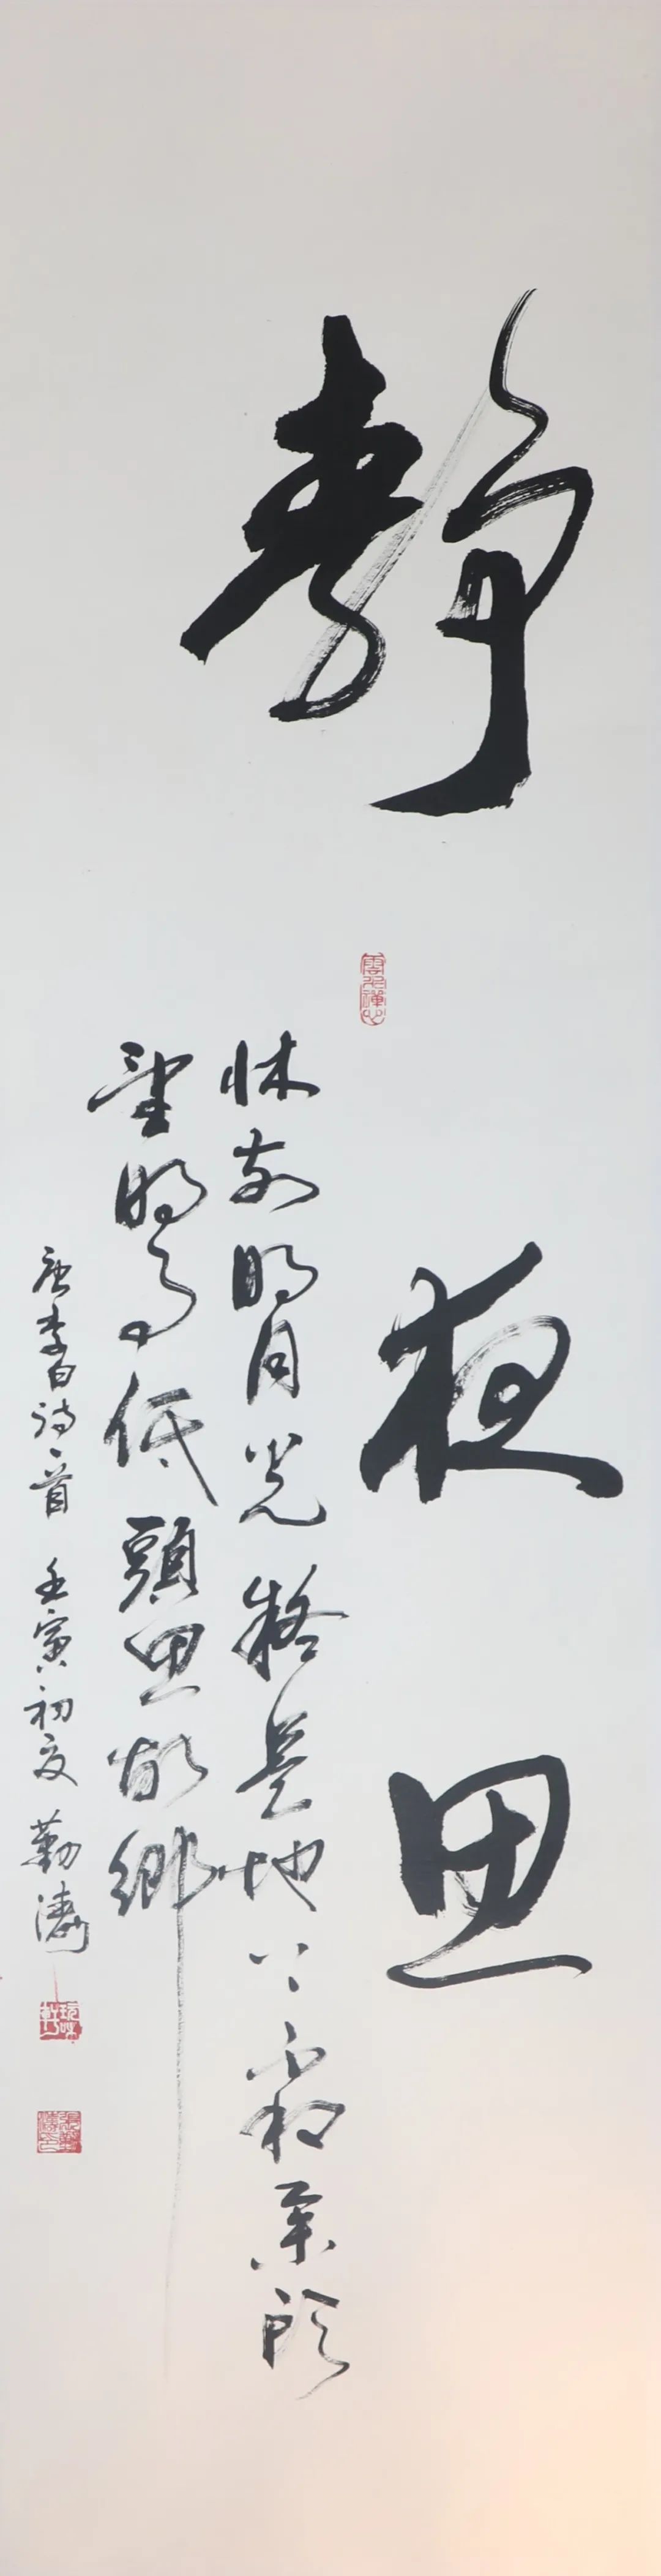 靜夜思
牀前明月光疑是地上霜舉頭
望明月低頭思故鄉
唐李白詩一首 壬寅初夏 勤濤
雲水禪心